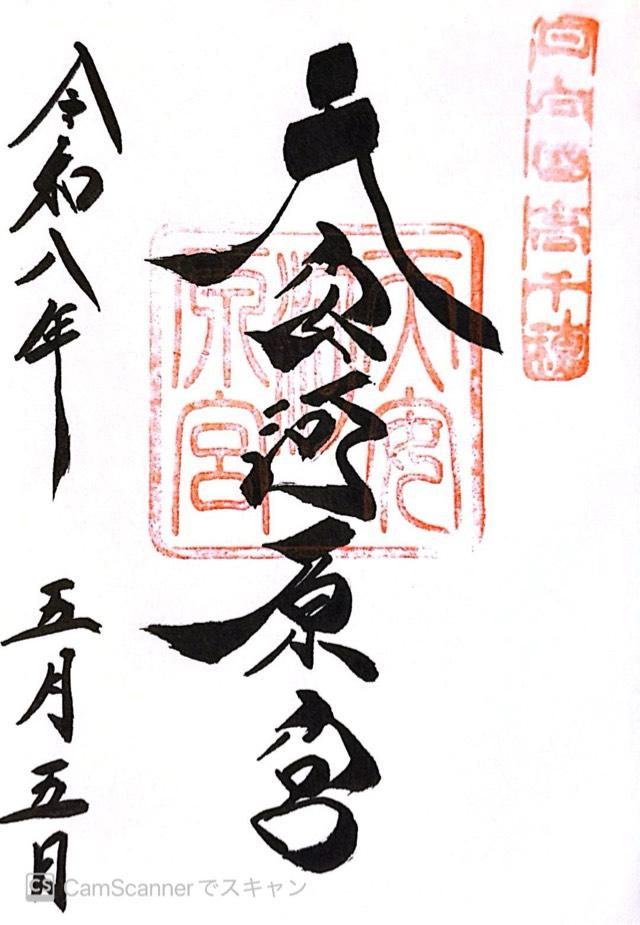 日向國高千穂
天安河原宮
天安河原宮
令和八年 五月五日
CS CamScannerでスキャン